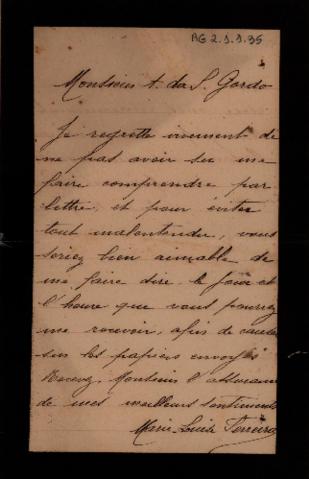 AG 2.1.1.95
Monsieur A. da S. Gordo
Je regrette vivement de
ne pas avoir su me
faire comprendre par
lettre, et pour éviter
tout malentendu, vous
seriez bien aimable de
me faire dire le jour et
l'heure que vous pourrez
me recevoir, afin de causer
sur les papiers envoyés
Recevez, Monsieur l'assurance
de mes meilleurs sentiments
Marie-Louise Ferreira